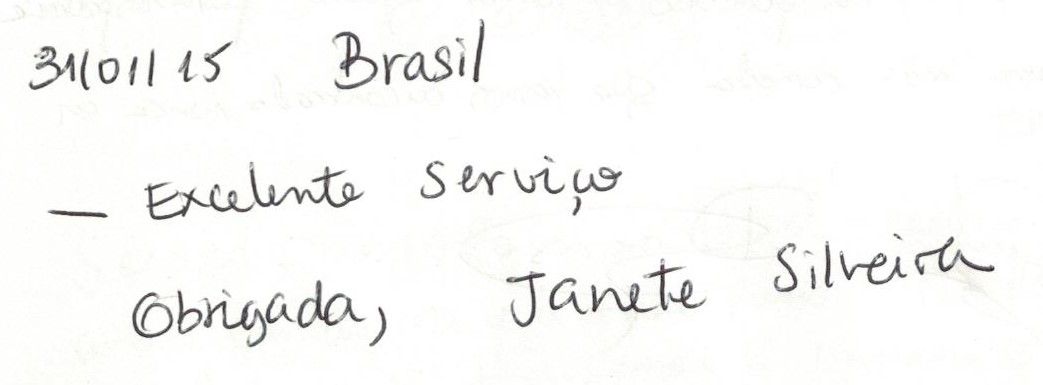 31/01/15 Brasil
— Excelente serviço
Obrigada, Janete Silveira